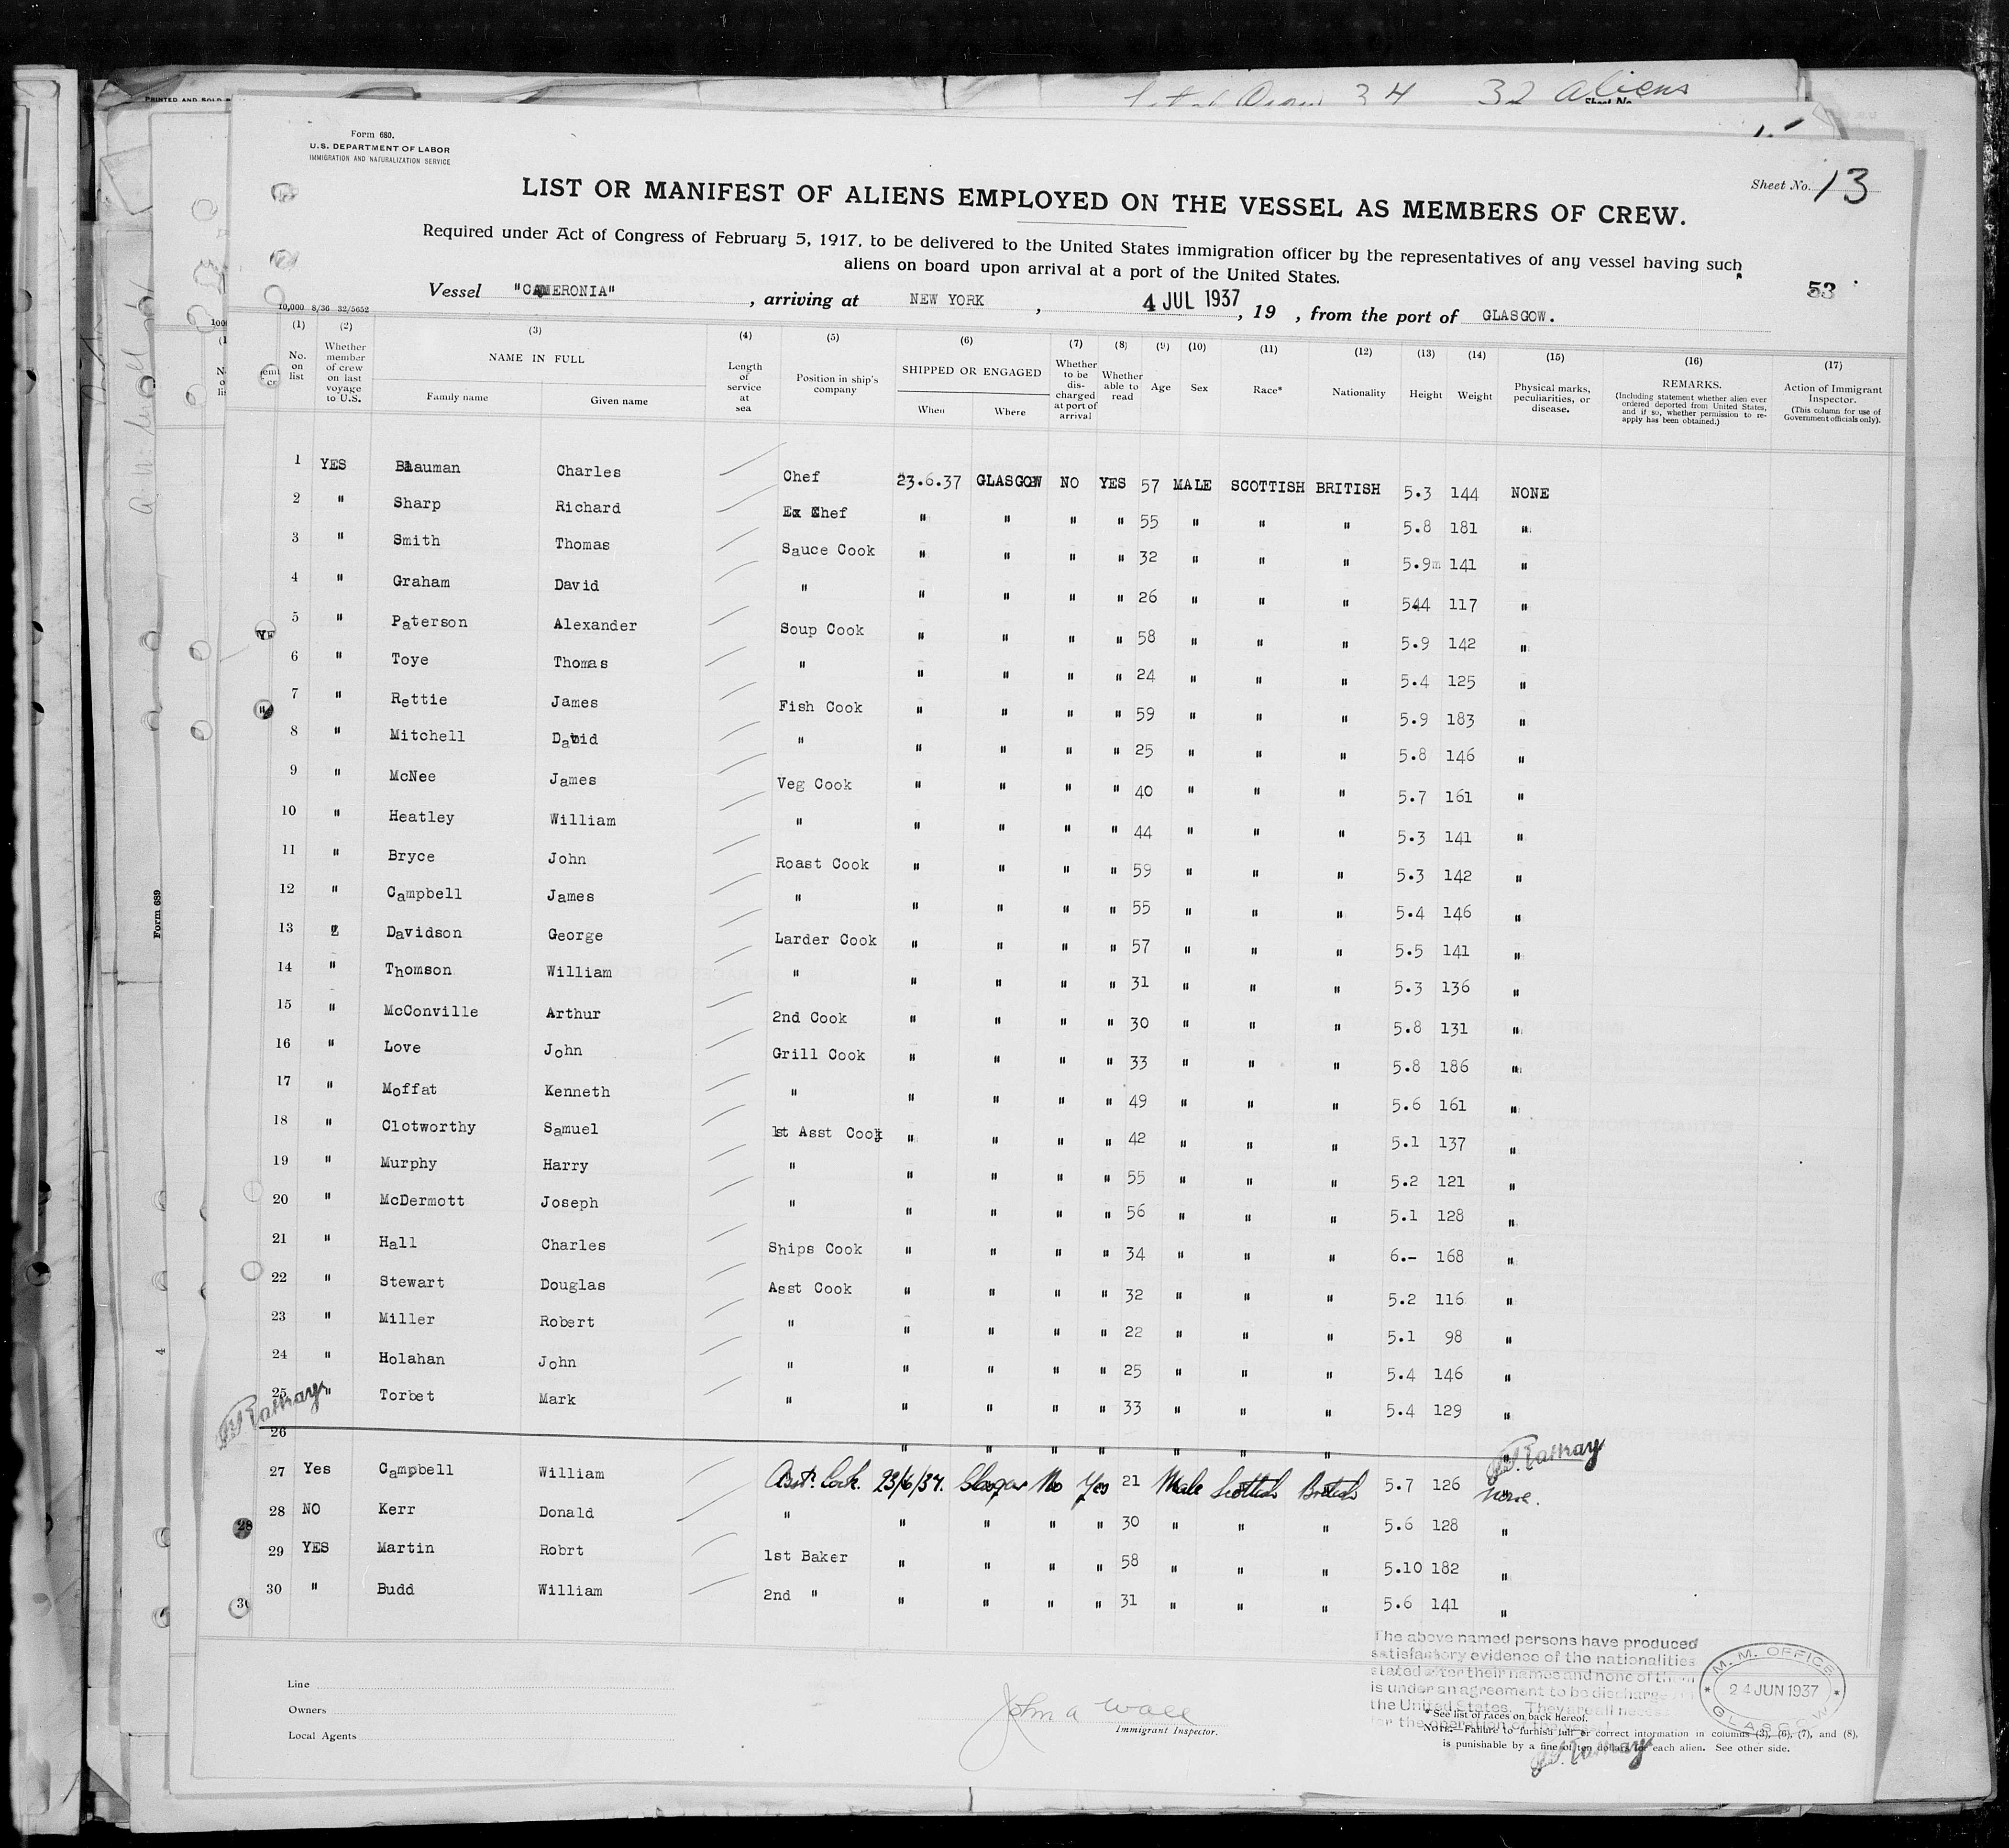 PRINTED AND SOLD B
32 aliens
Sheet No.
Form 680.
U.S. DEPARTMENT OF LABOR
IMMIGRATION AND NATURALIZATION SERVICE
Sheet No. 13
LIST OR MANIFEST OF ALIENS EMPLOYED ON THE VESSEL AS MEMBERS OF CREW.
Required under Act of Congress of February 5, 1917, to be delivered to the United States immigration officer by the representatives of any vessel having such
aliens on board upon arrival at a port of the United States.
53
Vessel "CAMERONIA", arriving at NEW YORK, 4 JUL 1937, 19 , from the port of GLASGOW.
10,000 8/36 32/5652
(1) (2) (3) (4) (5) (6) (7) (8) (9) (10) (11) (12) (13) (14) (15) (16) (17)
No. on list Whether member of crew on last voyage to U.S. NAME IN FULL Family name Given name Length of service at sea Position in ship's company SHIPPED OR ENGAGED When Where Whether to be dis-charged at port of arrival Whether able to read Age Sex Race* Nationality Height Weight Physical marks, peculiarities, or disease. REMARKS. (Including statement whether alien ever ordered deported from United States, and if so, whether permission to re-apply has been obtained.) Action of Immigrant Inspector. (This column for use of Government officials only).
1 YES Blauman Charles Chef 23.6.37 GLASGOW NO YES 57 MALE SCOTTISH BRITISH 5.3 144 NONE
2 " Sharp Richard Ex Chef " " " " 55 " " " 5.8 181 "
3 " Smith Thomas Sauce Cook " " " " 32 " " " 5.9 141 "
4 " Graham David " " " " " 26 " " " 5.4 117 "
5 " Paterson Alexander Soup Cook " " " " 58 " " " 5.9 142 "
6 " Toye Thomas " " " " " 24 " " " 5.4 125 "
7 " Rettie James Fish Cook " " " " 59 " " " 5.9 183 "
8 " Mitchell David " " " " " 25 " " " 5.8 146 "
9 " McNee James Veg Cook " " " " 40 " " " 5.7 161 "
10 " Heatley William " " " " " 44 " " " 5.3 141 "
11 " Bryce John Roast Cook " " " " 59 " " " 5.3 142 "
12 " Campbell James " " " " " 55 " " " 5.4 146 "
13 " Davidson George Larder Cook " " " " 57 " " " 5.5 141 "
14 " Thomson William " " " " " 31 " " " 5.3 136 "
15 " McConville Arthur 2nd Cook " " " " 30 " " " 5.8 131 "
16 " Love John Grill Cook " " " " 33 " " " 5.8 186 "
17 " Moffat Kenneth " " " " " 49 " " " 5.6 161 "
18 " Clotworthy Samuel 1st Asst Cook " " " " 42 " " " 5.1 137 "
19 " Murphy Harry " " " " " 55 " " " 5.2 121 "
20 " McDermott Joseph " " " " " 56 " " " 5.1 128 "
21 " Hall Charles Ships Cook " " " " 34 " " " 6.- 168 "
22 " Stewart Douglas Asst Cook " " " " 32 " " " 5.2 116 "
23 " Miller Robert " " " " " 22 " " " 5.1 98 "
24 " Holahan John " " " " " 25 " " " 5.4 146 "
25 " Torbet Mark " " " " " 33 " " " 5.4 129 "
26 " " " " " " " "
27 Yes Campbell William Asst. Cook. 23/6/37. Glasgow No Yes 21 Male Scottish British 5.7 126 none.
28 NO Kerr Donald " " " " " 30 " " " 5.6 128 "
29 YES Martin Robrt 1st Baker " " " " 58 " " " 5.10 182 "
30 " Budd William 2nd " " " " " 31 " " " 5.6 141 "
Form 689
The above named persons have produced
satisfactory evidence of the nationalities
stated after their names and none of them
is under an agreement to be discharge
the United States. They are all neces
for the operation of the vessel
M. M. OFFICE
24 JUN 1937
GLASGOW
Line
Owners
Local Agents
John A Wall
Immigrant Inspector.
* See list of races on back hereof.
NOTE.—Failure to furnish full or correct information in columns (3), (6), (7), and (8),
is punishable by a fine of ten dollars for each alien. See other side.